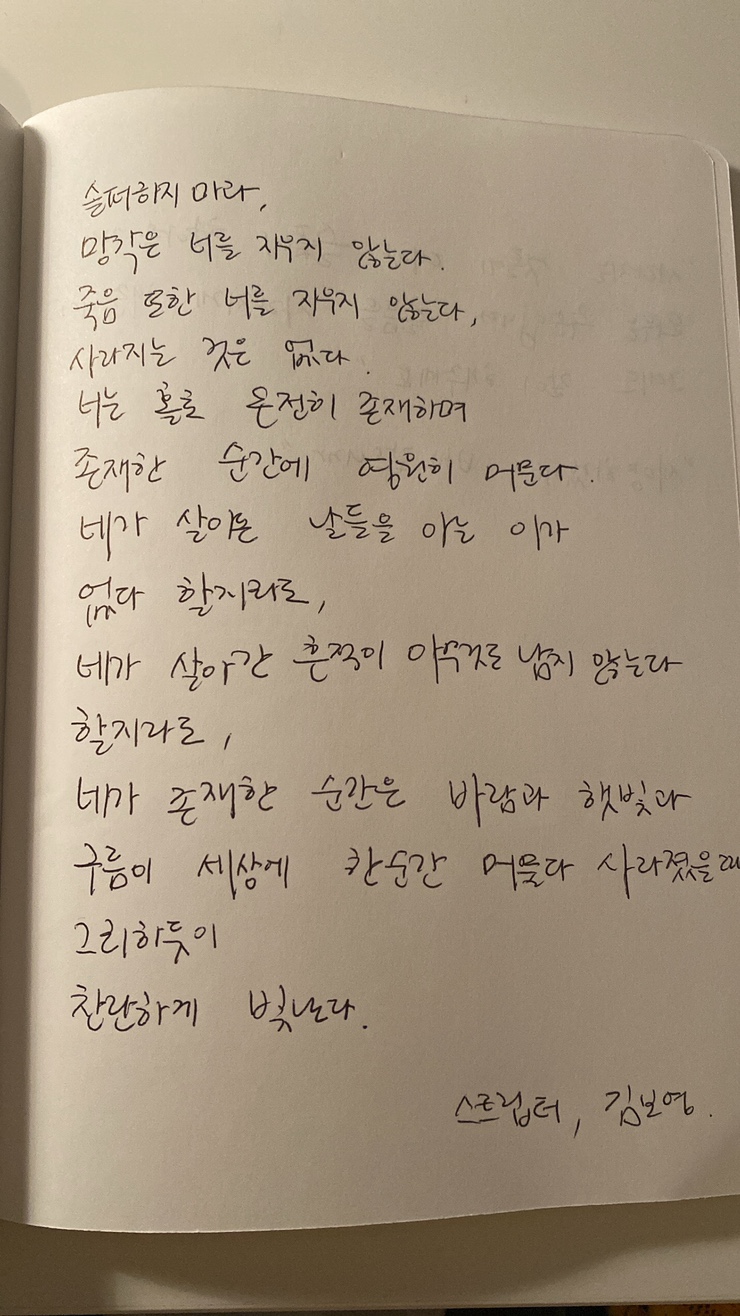 슬퍼하지 마라,
망각은 너를 지우지 않는다.
죽음 또한 너를 지우지 않는다,
사라지는 것은 없다.
너는 홀로 온전히 존재하며
존재한 순간에 영원히 머문다.
네가 살아온 날들을 아는 이가
없다 할지라도,
네가 살아간 흔적이 아무것도 남지 않는다
할지라도,
네가 존재한 순간은 바람과 햇빛과
구름이 세상에 한순간 머물다 사라졌을때
그리하듯이
찬란하게 빛난다.
스크립터, 김보영.